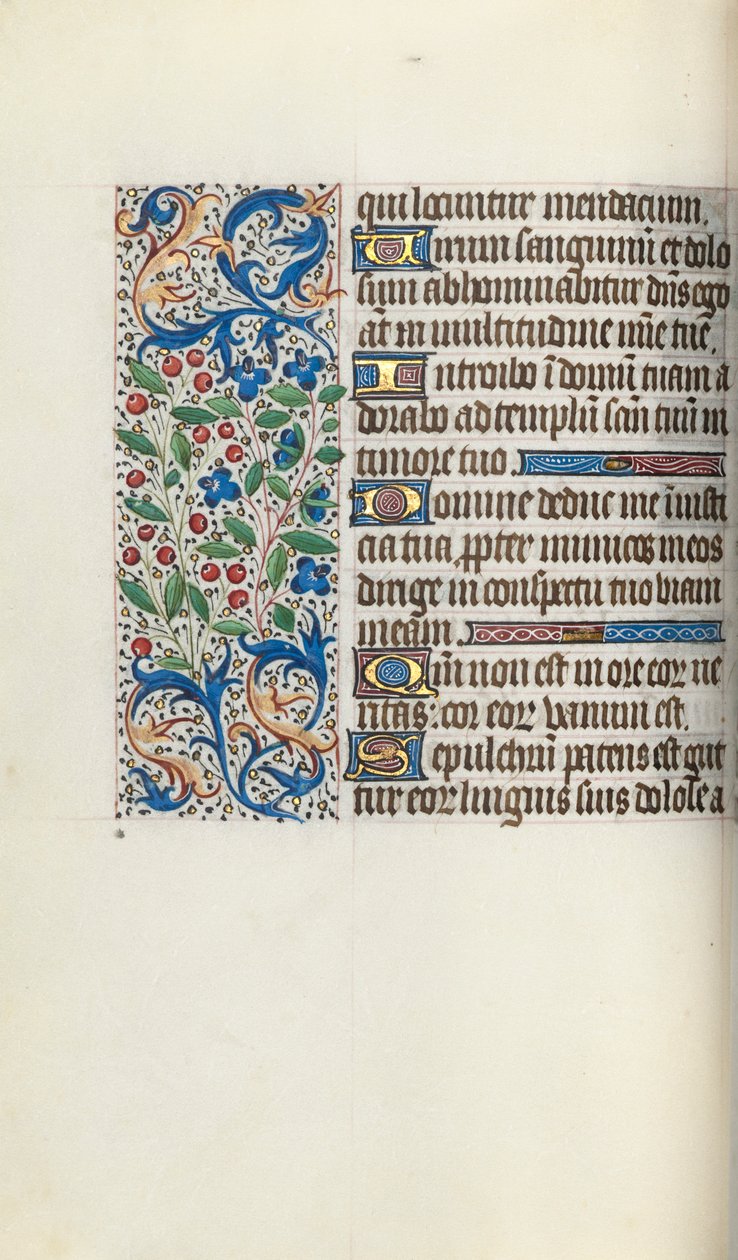 qui locuntur mendacium.
Uirum sanguinū et dolo
sum abhominabitur dn̄s ego
aūt in multitudine mīe tue.
Introibo ī domū tuam a
dorabo ad templū scm̄ tuū in
timore tuo.
Domine deduc me ī iusti
cia tua ꝓpter inimicos meos
dirige in conspectu tuo viam
meam.
Qm̄ non est in ore eoꝝ ve
ritas: cor eoꝝ vanum est.
Sepulchrū patens est gut
tur eoꝝ linguis suis dolose a